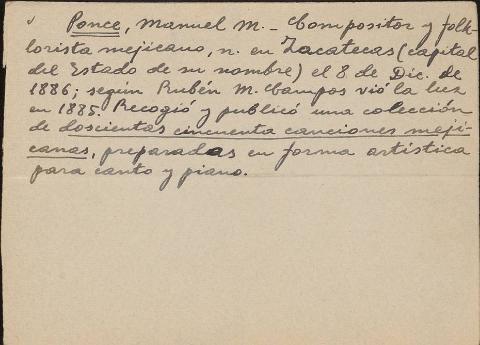 ✓ Ponce, Manuel M. – Compositor y folk-
lorista mejicano, n. en Zacatecas (capital
del Estado de su nombre) el 8 de Dic. de
1886; según Rubén M. Campos vió la luz
en 1885. Recogió y publicó una colección
de doscientas cincuenta canciones meji-
canas, preparadas en forma artística
para canto y piano.